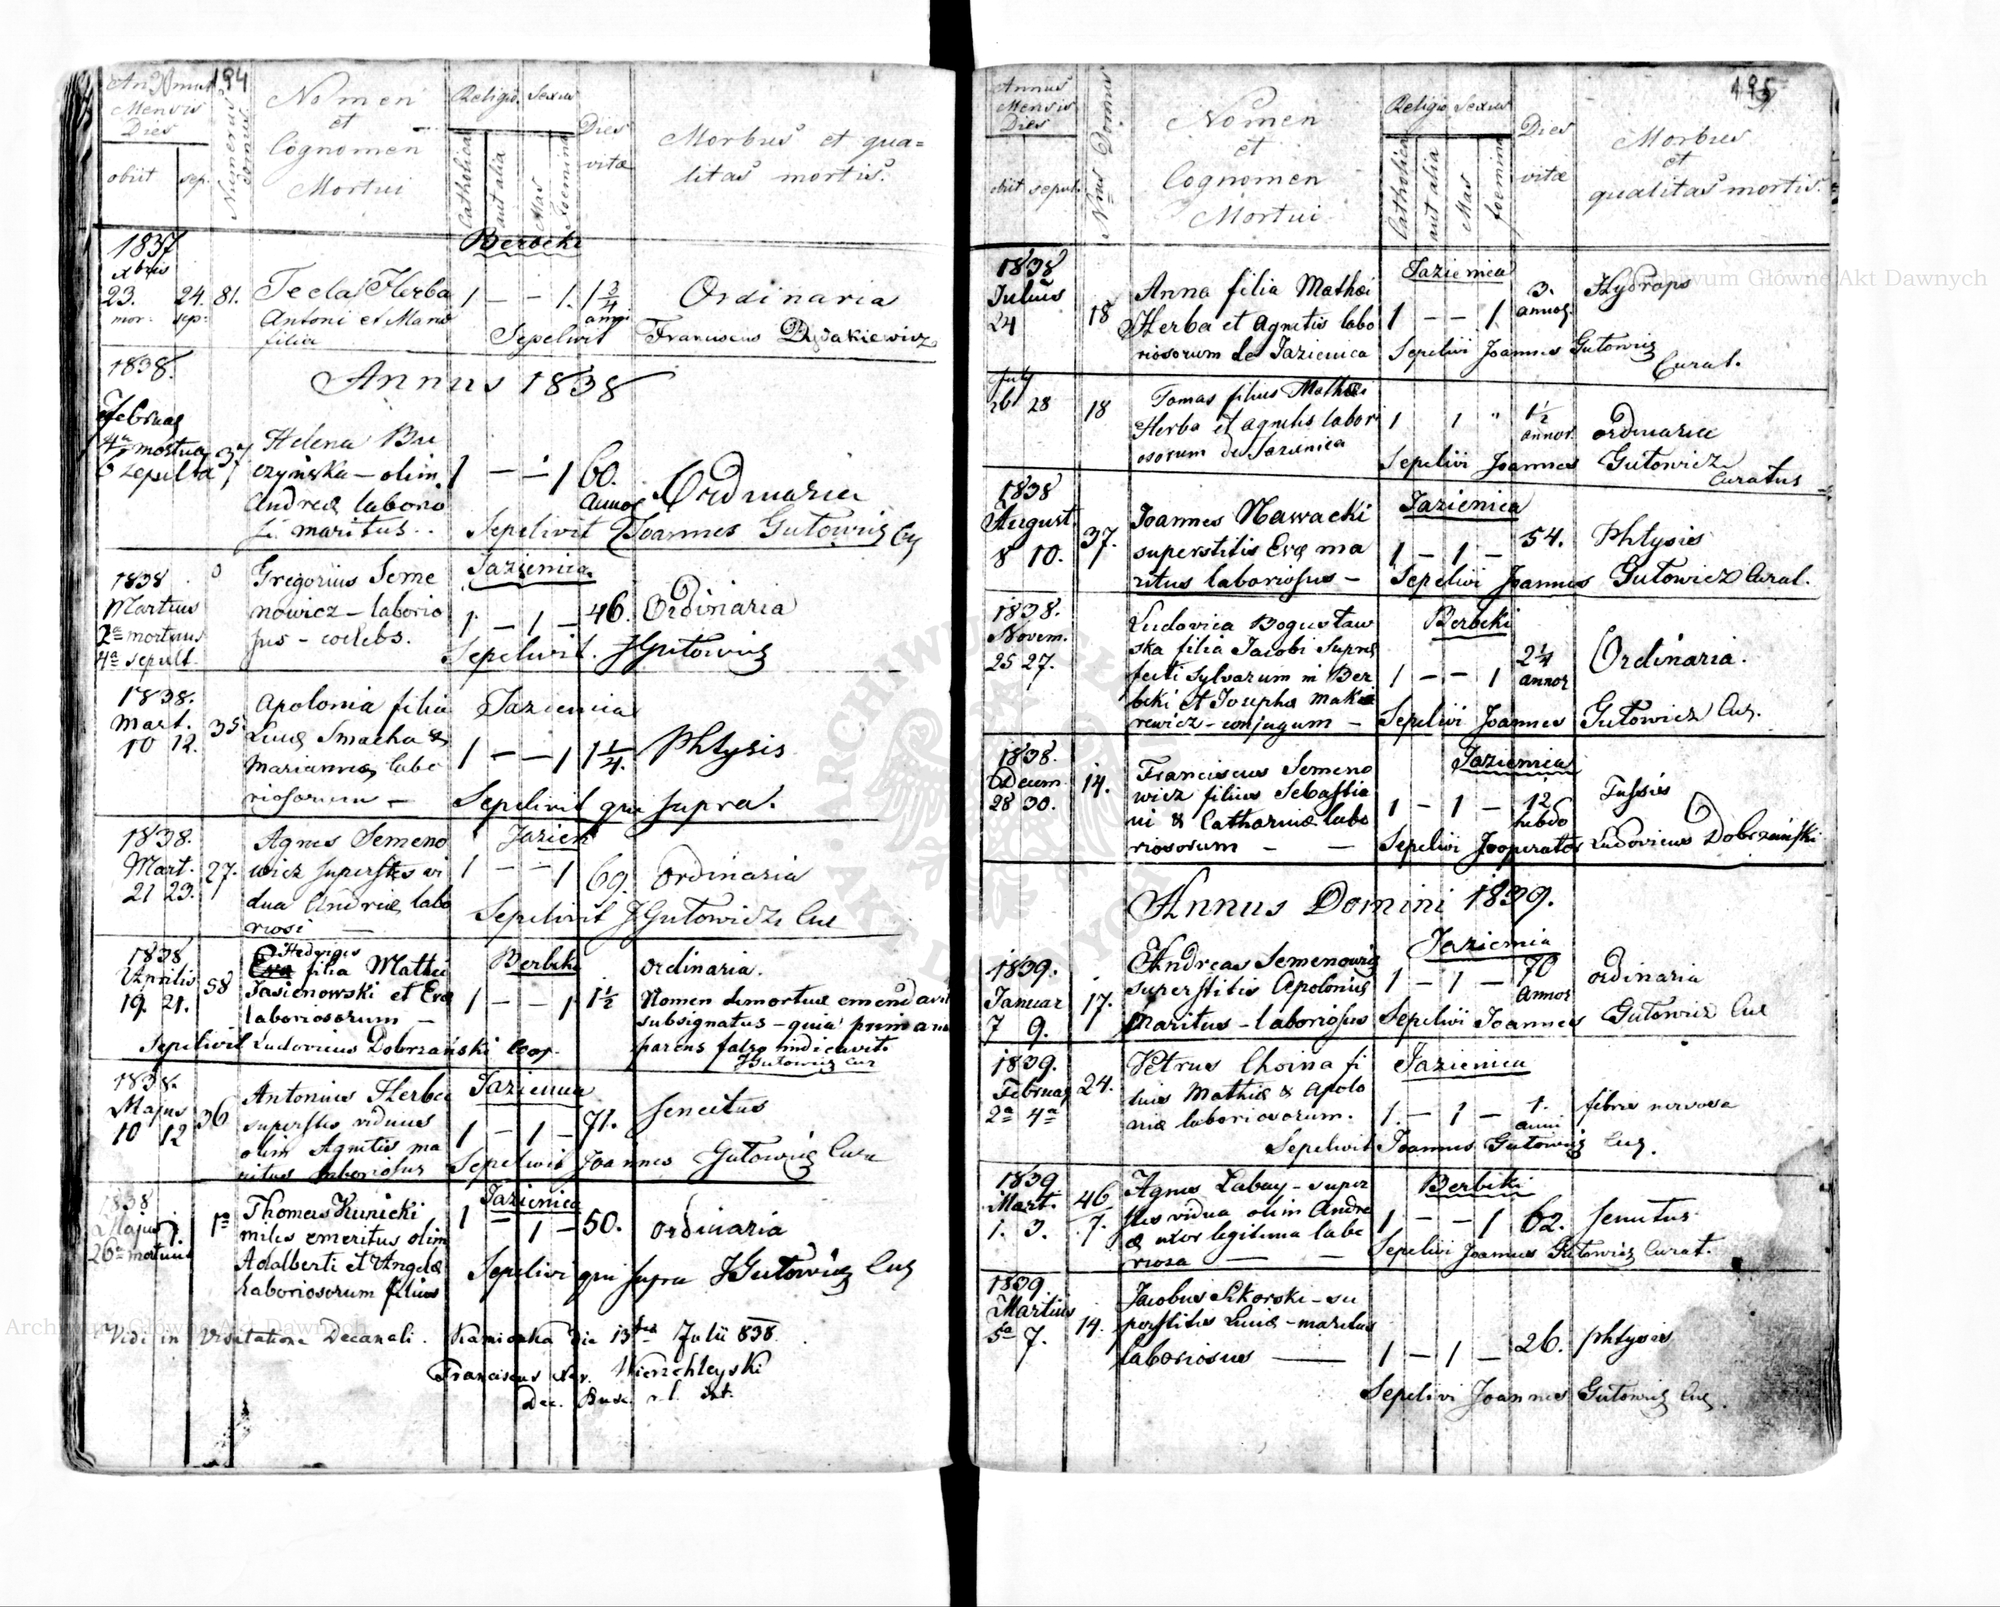 194
Annus
Mensis
Dies
obiit sep.
Numerus domus
Nomen
et
Cognomen
Mortui
Religio
Catholica
aut alia
Sexus
Mas
Foemina
Dies
vitæ
Morbus et qua=
litas mortis.
1837
Berbeki
xbris
23. 24. 81. Tecla Herba 1 – – 1. 1 3/4 Ordinaria
mor. sep:
Antoni et Maria
filia
Sepelivit Franciscus Dydakiewicz
1838.
Annus 1838
4a mortua 37 Helena Bu
6 sepulta czyńska – olim 1 – – 1 60. Ordinaria
Andreæ laborio
si maritus..
Annor
Sepelivit Joannes Gutowicz Cur
1838
Martius
2a mortuus
4a sepult.
Gregorius Seme
nowicz – laborio
sus – coelebs.
Jazienica.
1. – 1 – 46. Ordinaria
Sepelivit. JGutowicz
1838.
Mart. 35
10 12.
Apolonia filia
Lucæ Smacha &
Mariannæ labo
riosorum –
Jazienica
1 – – 1 1 1/4. Phtysis
Sepelivit qui supra.
1838.
Mart. 27.
21 23.
Agnes Semeno
wicz superstes vi
dua Andreæ labo
riosi –
Jazien
1 – – 1 69. Ordinaria
Sepelivit JGutowicz Cur
1838
Aprilis 58
19. 21.
Hedvigis
Eva filia Mathei
Jasienowski et Evæ
laboriosorum –
Berbeki
1 – – 1 1 1/2
ordinaria.
Nomen demortuæ emendavit
subsignatus – quia primam
parens falso indicavit.
JGutowicz Cur
Sepelivit Ludovicus Dobrzański Coop.
1838.
Majus 36
10 12
Antonius Herba
superstes viduus
olim Agnetis ma
ritus laboriosus
Jazienica
1 – 1 – 71. Senectus
Sepelivit Joannes Gutowicz Cura
1838
Majus
26a mortuus
Thomas Kunicki
miles emeritus olim
Adalberti et Angelæ
laboriosorum filius
Jazienica
1 – 1 – 50. ordinaria
Sepelivi qui supra JGutowicz Cur
Vidi in Visitatione Decanali. Kamionka die 13 Julii 838.
Franciscus Wierzchleyski
Dec. Busc.
195
Annus
Mensis
Dies
obiit sepul.
Nrus Domus
Nomen
et
Cognomen
Mortui
Religio
Catholica
aut alia
Sexus
Mas
foemina
Dies
vitæ
Morbus
et
qualitas mortis.
1838
Julius
24
18
Anna filia Mathæi
Herba et Agnetis labo
riosorum de Jazienica
Jazienica
1 – – 1 3. annor. Hydrops
Sepelivi Joannes Gutowicz
Curat.
July
26 28 18
Tomas filius Mathæi
Herba et Agnetis labori
osorum de Jazienica
1 1 " 1 1/2 annor. ordinaria
Sepelivi Joannes Gutowicz
Curatus
1838
August. 37.
8 10.
Joannes Nawacki
superstitis Evæ ma
ritus laboriosus –
Jazienica
1 – 1 – 54. Phtysis
Sepelivi Joannes Gutowicz Curat.
1838.
Novem.
25 27.
Ludovica Bogustaw
ska filia Jacobi supræ
fecti sylvarum in Ber
beki et Josepha Makie
rewicz – conjugum –
Berbeki
1 – – 1 2 1/4 annor Ordinaria.
Sepelivi Joannes Gutowicz Cur.
1838.
Decem. 14.
28 30.
Franciscus Semeno
wicz filius Sebastia
ni & Catharinæ labo
riosorum – –
Jazienica
1 – 1 – 12 hebdo Tussis
Sepelivi Cooperator Ludovicus Dobrzański
Annus Domini 1839.
1839.
Januar 17.
7 9.
Andreas Semenowicz
superstitis Apoloniæ
maritus – laboriosus
Jazienica
1 – 1 – 70 Annor ordinaria
Sepelivi Joannes Gutowicz Cur
1839.
Februar 24.
2a 4a
Petrus Choina fi
lius Mathiæ & Apolo
niæ laboriosorum.
Jazienica
1. – 1 – 1. anni febris nervosa
Sepelivit Joannes Gutowicz Cur.
1839
Mart. 46
1. 3. 7.
Agnes Labay – super
stes vidua olim Andre
æ uxor legitima labo
riosa – –
Berbeki
1 – – 1 62. senectus
Sepelivi Joannes Gutowicz Curat.
1839
Martius 14.
5a 7.
Jacobus Sikorski – su
perstitis Luciæ – maritus
laboriosus –
1 – 1 – 26. phtysis
Sepelivi Joannes Gutowicz Cur.
Archiwum Główne Akt Dawnych
Archiwum Główne Akt Dawnych
ARCHIWUM GŁÓWNE AKT DAWNYCH